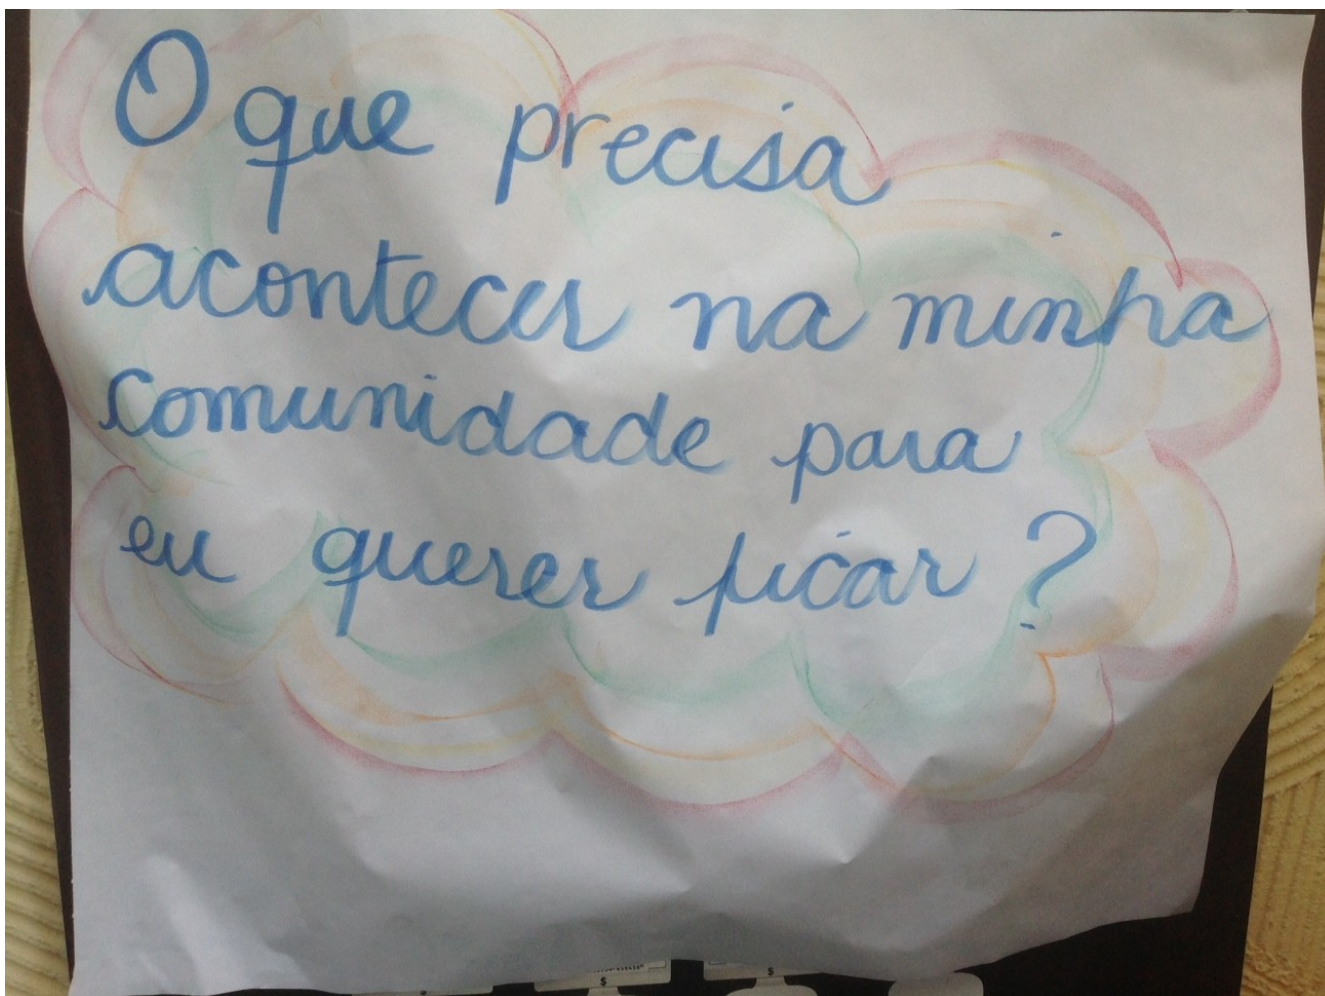 O que precisa
acontecer na minha
comunidade para
eu querer ficar?
$
$